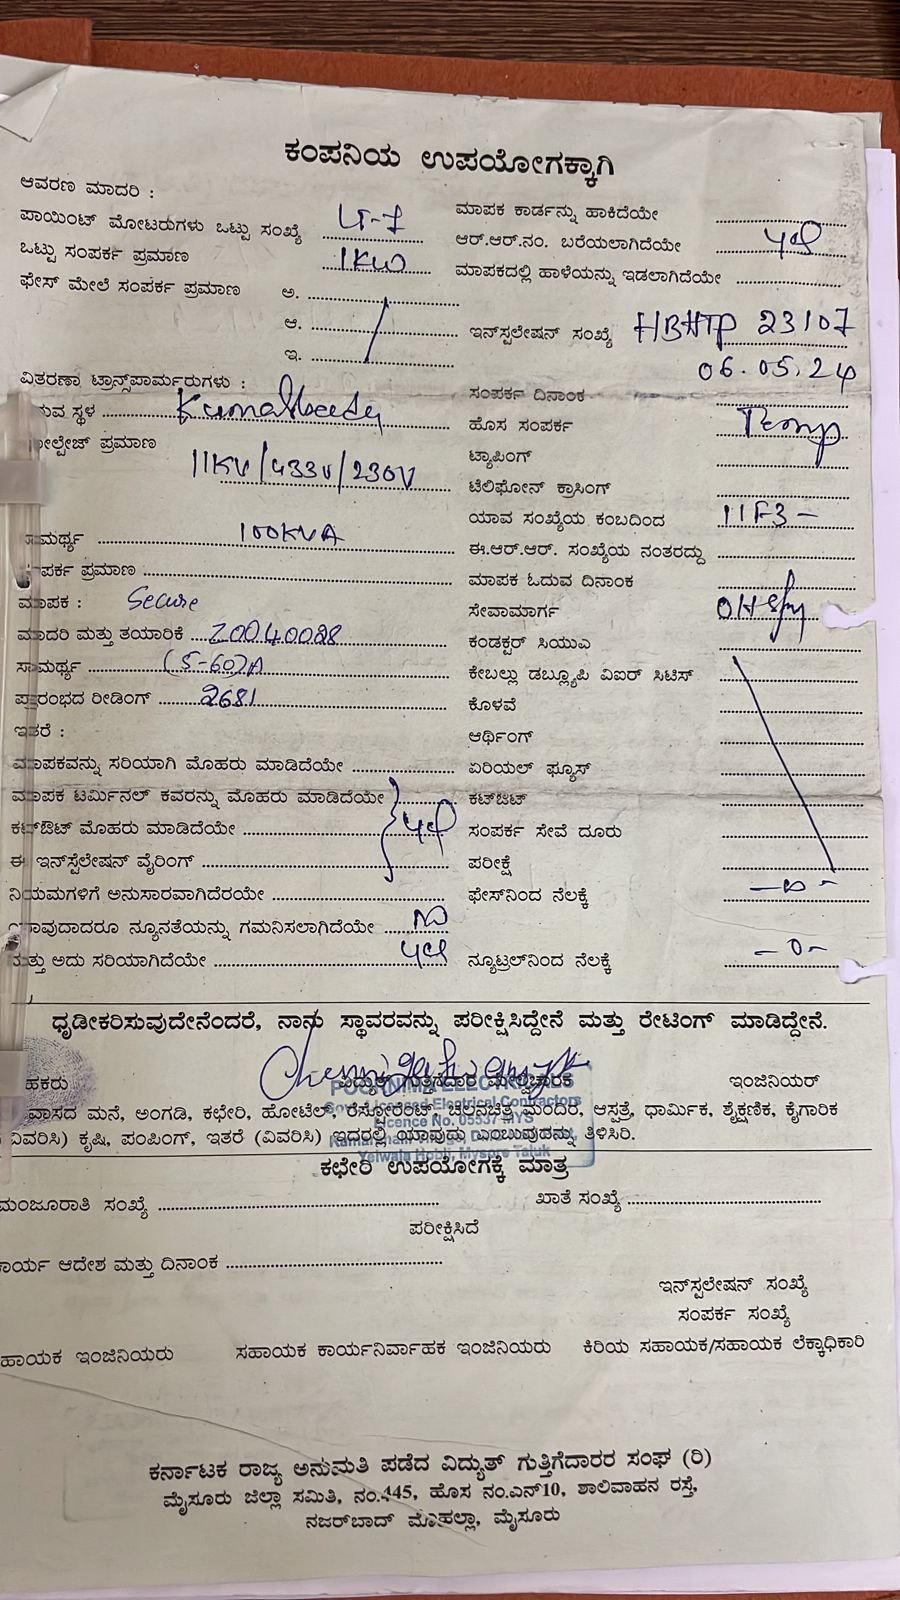 ಕಂಪನಿಯ ಉಪಯೋಗಕ್ಕಾಗಿ
ಆವರಣ ಮಾದರಿ :
ಪಾಯಿಂಟ್ ಮೋಟರುಗಳು ಒಟ್ಟು ಸಂಖ್ಯೆ LT-7
ಒಟ್ಟು ಸಂಪರ್ಕ ಪ್ರಮಾಣ 1KW
ಫೇಸ್ ಮೇಲೆ ಸಂಪರ್ಕ ಪ್ರಮಾಣ ಅ.
ಆ.
ಇ.
ವಿತರಣಾ ಟ್ರಾನ್ಸ್‌ಪಾರ್ಮರುಗಳು :
ರುವ ಸ್ಥಳ
ೋಲ್ಟೇಜ್ ಪ್ರಮಾಣ
11KV/433V/230V
ಾಮರ್ಥ್ಯ 100KVA
ಪರ್ಕ ಪ್ರಮಾಣ
ಮಾಪಕ : Secure
ಮಾದರಿ ಮತ್ತು ತಯಾರಿಕೆ 20040088
ಸಾಮರ್ಥ್ಯ (5-60)A
ಪ್ರಾರಂಭದ ರೀಡಿಂಗ್ 2681
ಇತರೆ :
ಮಾಪಕವನ್ನು ಸರಿಯಾಗಿ ಮೊಹರು ಮಾಡಿದೆಯೇ
ಮಾಪಕ ಟರ್ಮಿನಲ್ ಕವರನ್ನು ಮೊಹರು ಮಾಡಿದೆಯೇ
ಕಟ್‌ಔಟ್ ಮೊಹರು ಮಾಡಿದೆಯೇ yes
ಈ ಇನ್‌ಸ್ಪೆಲೇಷನ್ ವೈರಿಂಗ್
ನಿಯಮಗಳಿಗೆ ಅನುಸಾರವಾಗಿದೆರಯೇ
ಯಾವುದಾದರೂ ನ್ಯೂನತೆಯನ್ನು ಗಮನಿಸಲಾಗಿದೆಯೇ NO
ಮತ್ತು ಅದು ಸರಿಯಾಗಿದೆಯೇ yes
ಮಾಪಕ ಕಾರ್ಡನ್ನು ಹಾಕಿದೆಯೇ
ಆರ್.ಆರ್.ನಂ. ಬರೆಯಲಾಗಿದೆಯೇ yes
ಮಾಪಕದಲ್ಲಿ ಹಾಳೆಯನ್ನು ಇಡಲಾಗಿದೆಯೇ
ಇನ್‌ಸ್ಪಲೇಷನ್ ಸಂಖ್ಯೆ HBHTP 23107
06.05.24
ಸಂಪರ್ಕ ದಿನಾಂಕ
ಹೊಸ ಸಂಪರ್ಕ Temp
ಟ್ಯಾಪಿಂಗ್
ಟೆಲಿಫೋನ್ ಕ್ರಾಸಿಂಗ್
ಯಾವ ಸಂಖ್ಯೆಯ ಕಂಬದಿಂದ 11F3 -
ಈ.ಆರ್.ಆರ್. ಸಂಖ್ಯೆಯ ನಂತರದ್ದು
ಮಾಪಕ ಓದುವ ದಿನಾಂಕ
ಸೇವಾಮಾರ್ಗ OH
ಕಂಡಕ್ಟರ್ ಸಿಯುಎ
ಕೇಬಲ್ಲು ಡಬ್ಲ್ಯೂಪಿ ವಿಐರ್ ಸಿಟಿಸ್
ಕೊಳವೆ
ಆರ್ಥಿಂಗ್
ಏರಿಯಲ್ ಫ್ಯೂಸ್
ಕಟ್‌ಔಟ್
ಸಂಪರ್ಕ ಸೇವೆ ದೂರು
ಪರೀಕ್ಷೆ
ಫೇಸ್‌ನಿಂದ ನೆಲಕ್ಕೆ -0-
ನ್ಯೂಟ್ರಲ್‌ನಿಂದ ನೆಲಕ್ಕೆ -0-
ಧೃಡೀಕರಿಸುವುದೇನೆಂದರೆ, ನಾನು ಸ್ಥಾವರವನ್ನು ಪರೀಕ್ಷಿಸಿದ್ದೇನೆ ಮತ್ತು ರೇಟಿಂಗ್ ಮಾಡಿದ್ದೇನೆ.
ಹಕರು ವಿದ್ಯುತ್ ಗುತ್ತಿಗೆದಾರ ಮೇಲ್ವಿಚಾರಕ ಇಂಜಿನಿಯರ್
POORNIMA ELECTRICALS
Govt. Licensed Electrical Contractors
Licence No. 05537 MYS
Yelwala Hobli, Mysore Taluk
ವಾಸದ ಮನೆ, ಅಂಗಡಿ, ಕಛೇರಿ, ಹೋಟೆಲ್, ರೆಸ್ಟೋರೆಂಟ್, ಚಲನಚಿತ್ರ ಮಂದಿರ, ಆಸ್ಪತ್ರೆ, ಧಾರ್ಮಿಕ, ಶೈಕ್ಷಣಿಕ, ಕೈಗಾರಿಕ
ವಿವರಿಸಿ) ಕೃಷಿ, ಪಂಪಿಂಗ್, ಇತರೆ (ವಿವರಿಸಿ) ಇದರಲ್ಲಿ ಯಾವುದು ಎಂಬುವುದನ್ನು ತಿಳಿಸಿರಿ.
ಕಛೇರಿ ಉಪಯೋಗಕ್ಕೆ ಮಾತ್ರ
ಮಂಜೂರಾತಿ ಸಂಖ್ಯೆ ಖಾತೆ ಸಂಖ್ಯೆ
ಪರೀಕ್ಷಿಸಿದೆ
ಕಾರ್ಯ ಆದೇಶ ಮತ್ತು ದಿನಾಂಕ
ಇನ್‌ಸ್ಪಲೇಷನ್ ಸಂಖ್ಯೆ
ಸಂಪರ್ಕ ಸಂಖ್ಯೆ
ಹಾಯಕ ಇಂಜಿನಿಯರು ಸಹಾಯಕ ಕಾರ್ಯನಿರ್ವಾಹಕ ಇಂಜಿನಿಯರು ಕಿರಿಯ ಸಹಾಯಕ/ಸಹಾಯಕ ಲೆಕ್ಕಾಧಿಕಾರಿ
ಕರ್ನಾಟಕ ರಾಜ್ಯ ಅನುಮತಿ ಪಡೆದ ವಿದ್ಯುತ್ ಗುತ್ತಿಗೆದಾರರ ಸಂಘ (ರಿ)
ಮೈಸೂರು ಜಿಲ್ಲಾ ಸಮಿತಿ, ನಂ.445, ಹೊಸ ನಂ.ಎನ್10, ಶಾಲಿವಾಹನ ರಸ್ತೆ,
ನಜರ್‌ಬಾದ್ ಮೊಹಲ್ಲಾ, ಮೈಸೂರು